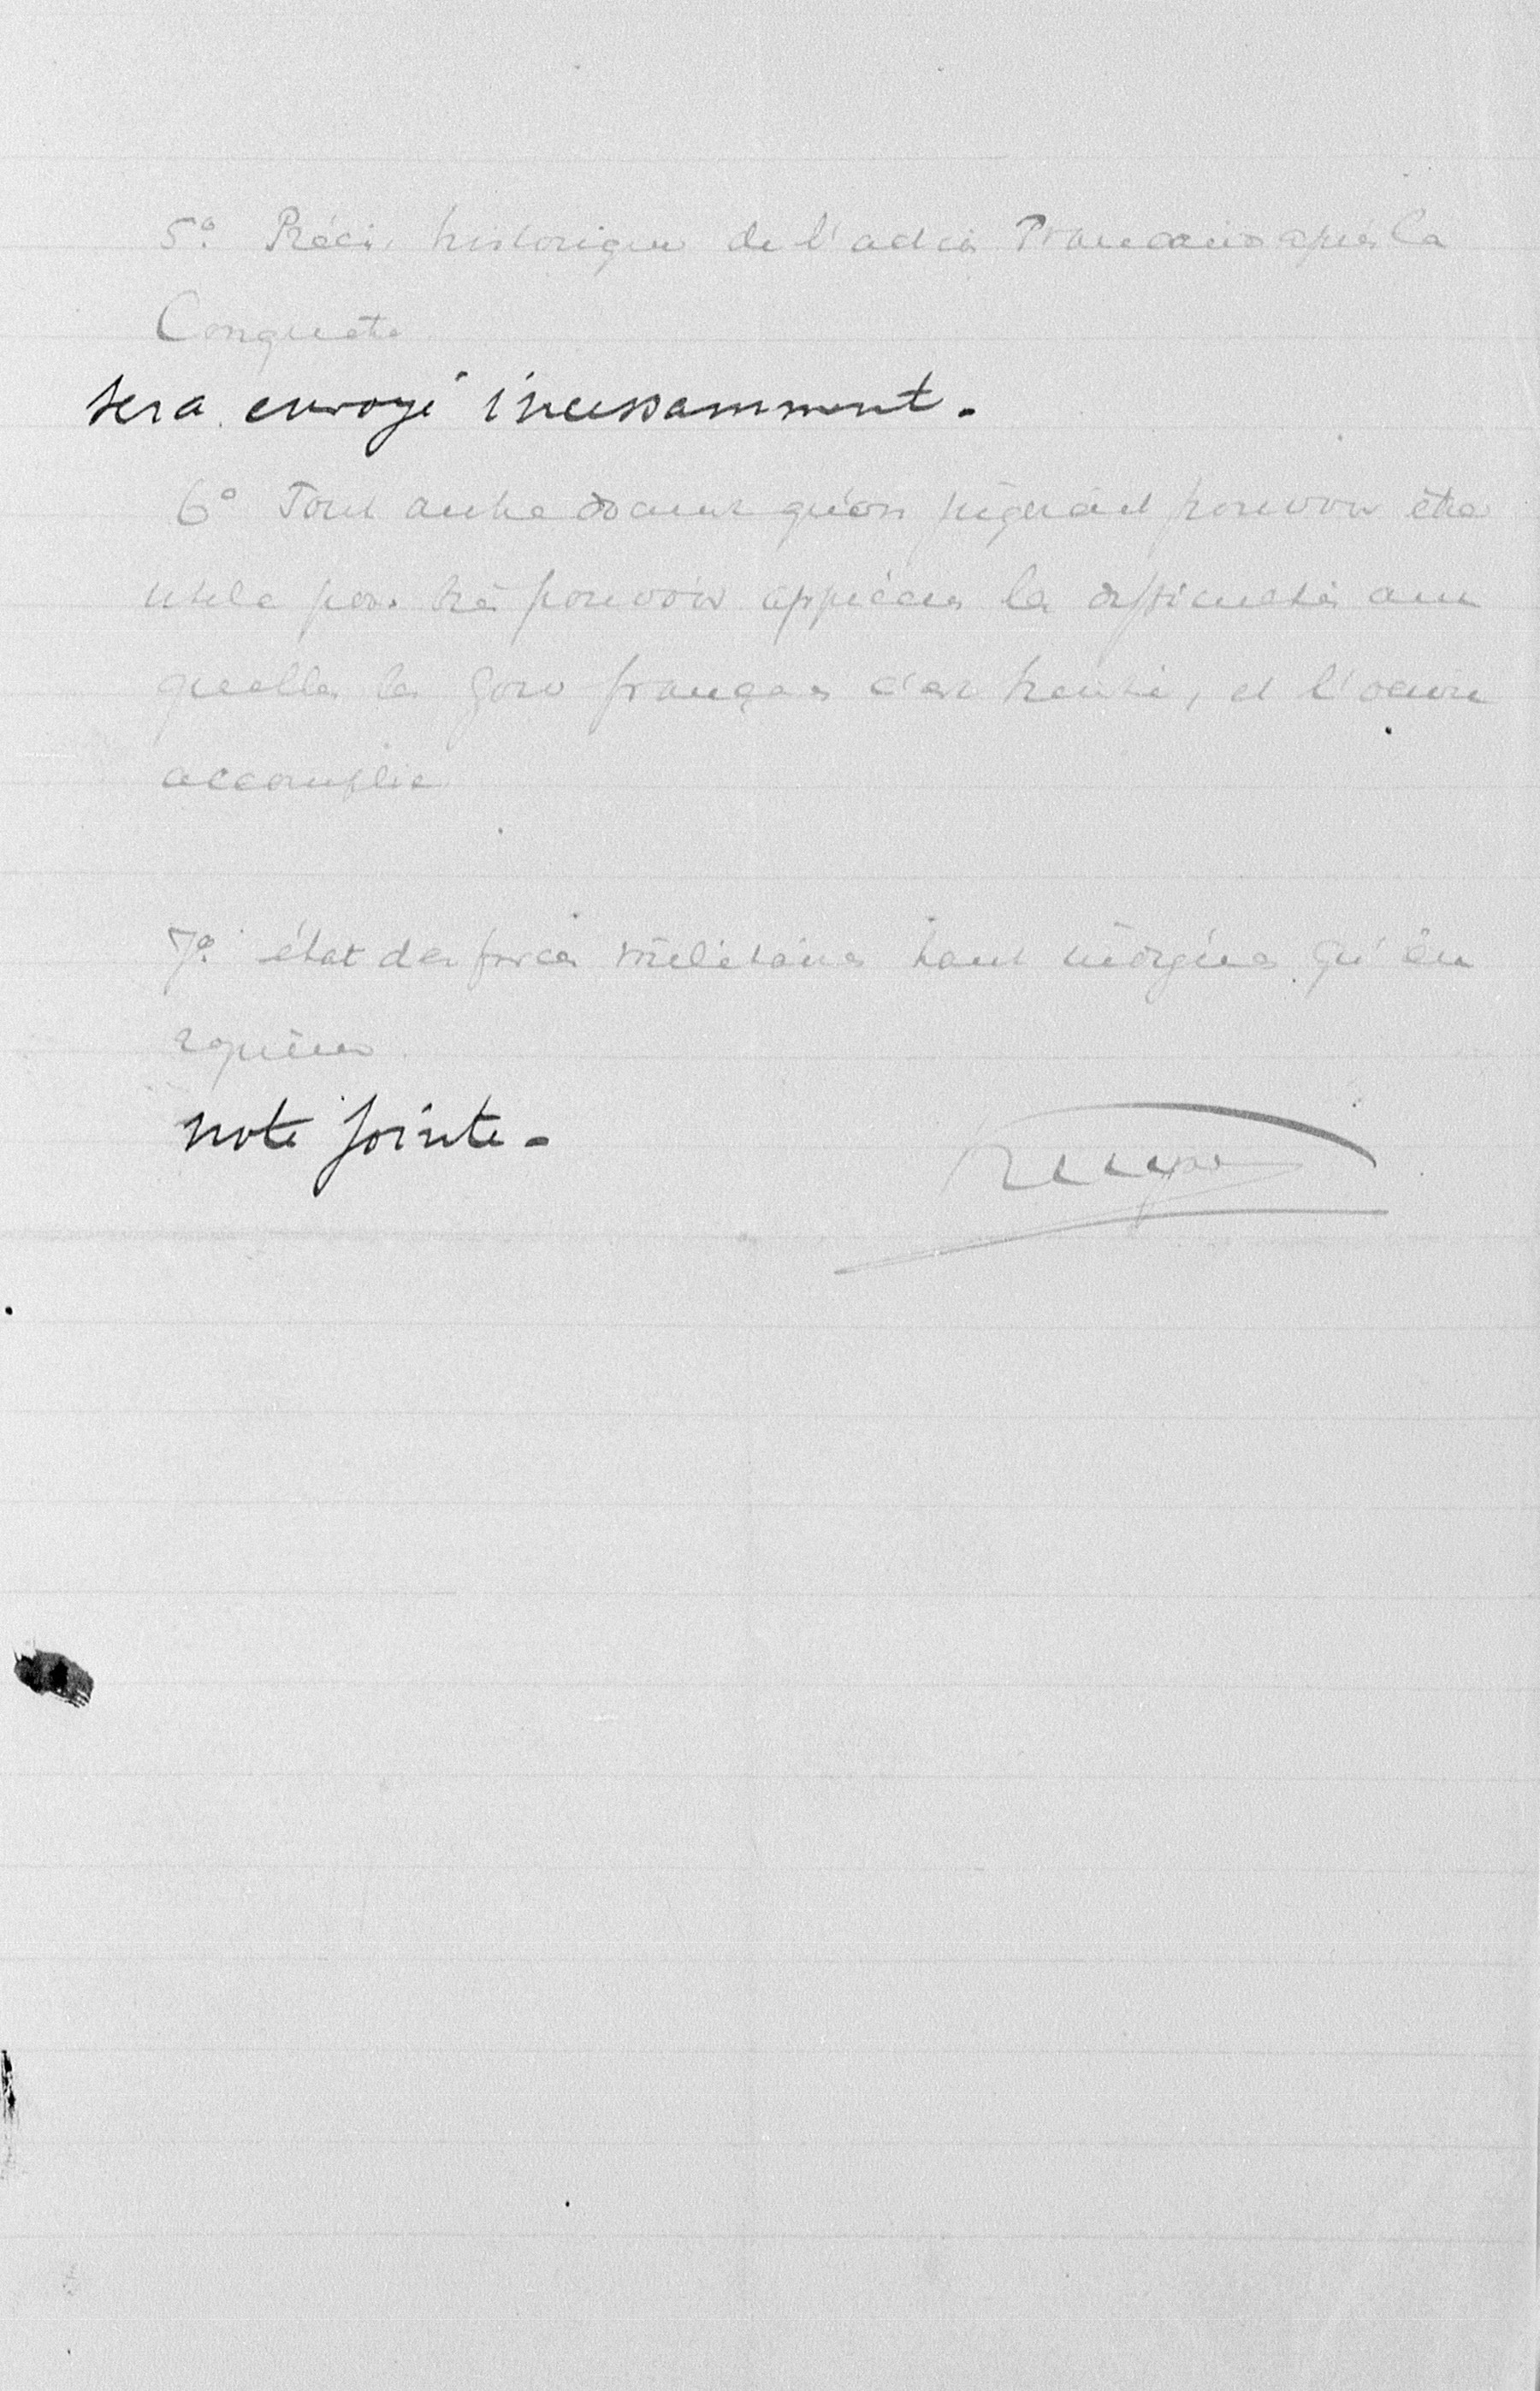 5° Précis historique de l'action Française après la
Conquête
sera envoyé incessamment.
6° Tout autre document qu'on jugerait pouvoir être
utile pour pouvoir apprécier la difficultés aux
quelles le Gouv français s'est heurté, et l'œuvre
accomplie
7° état des forces militaires tant indigènes qu'eu
ropéennes
note jointe -